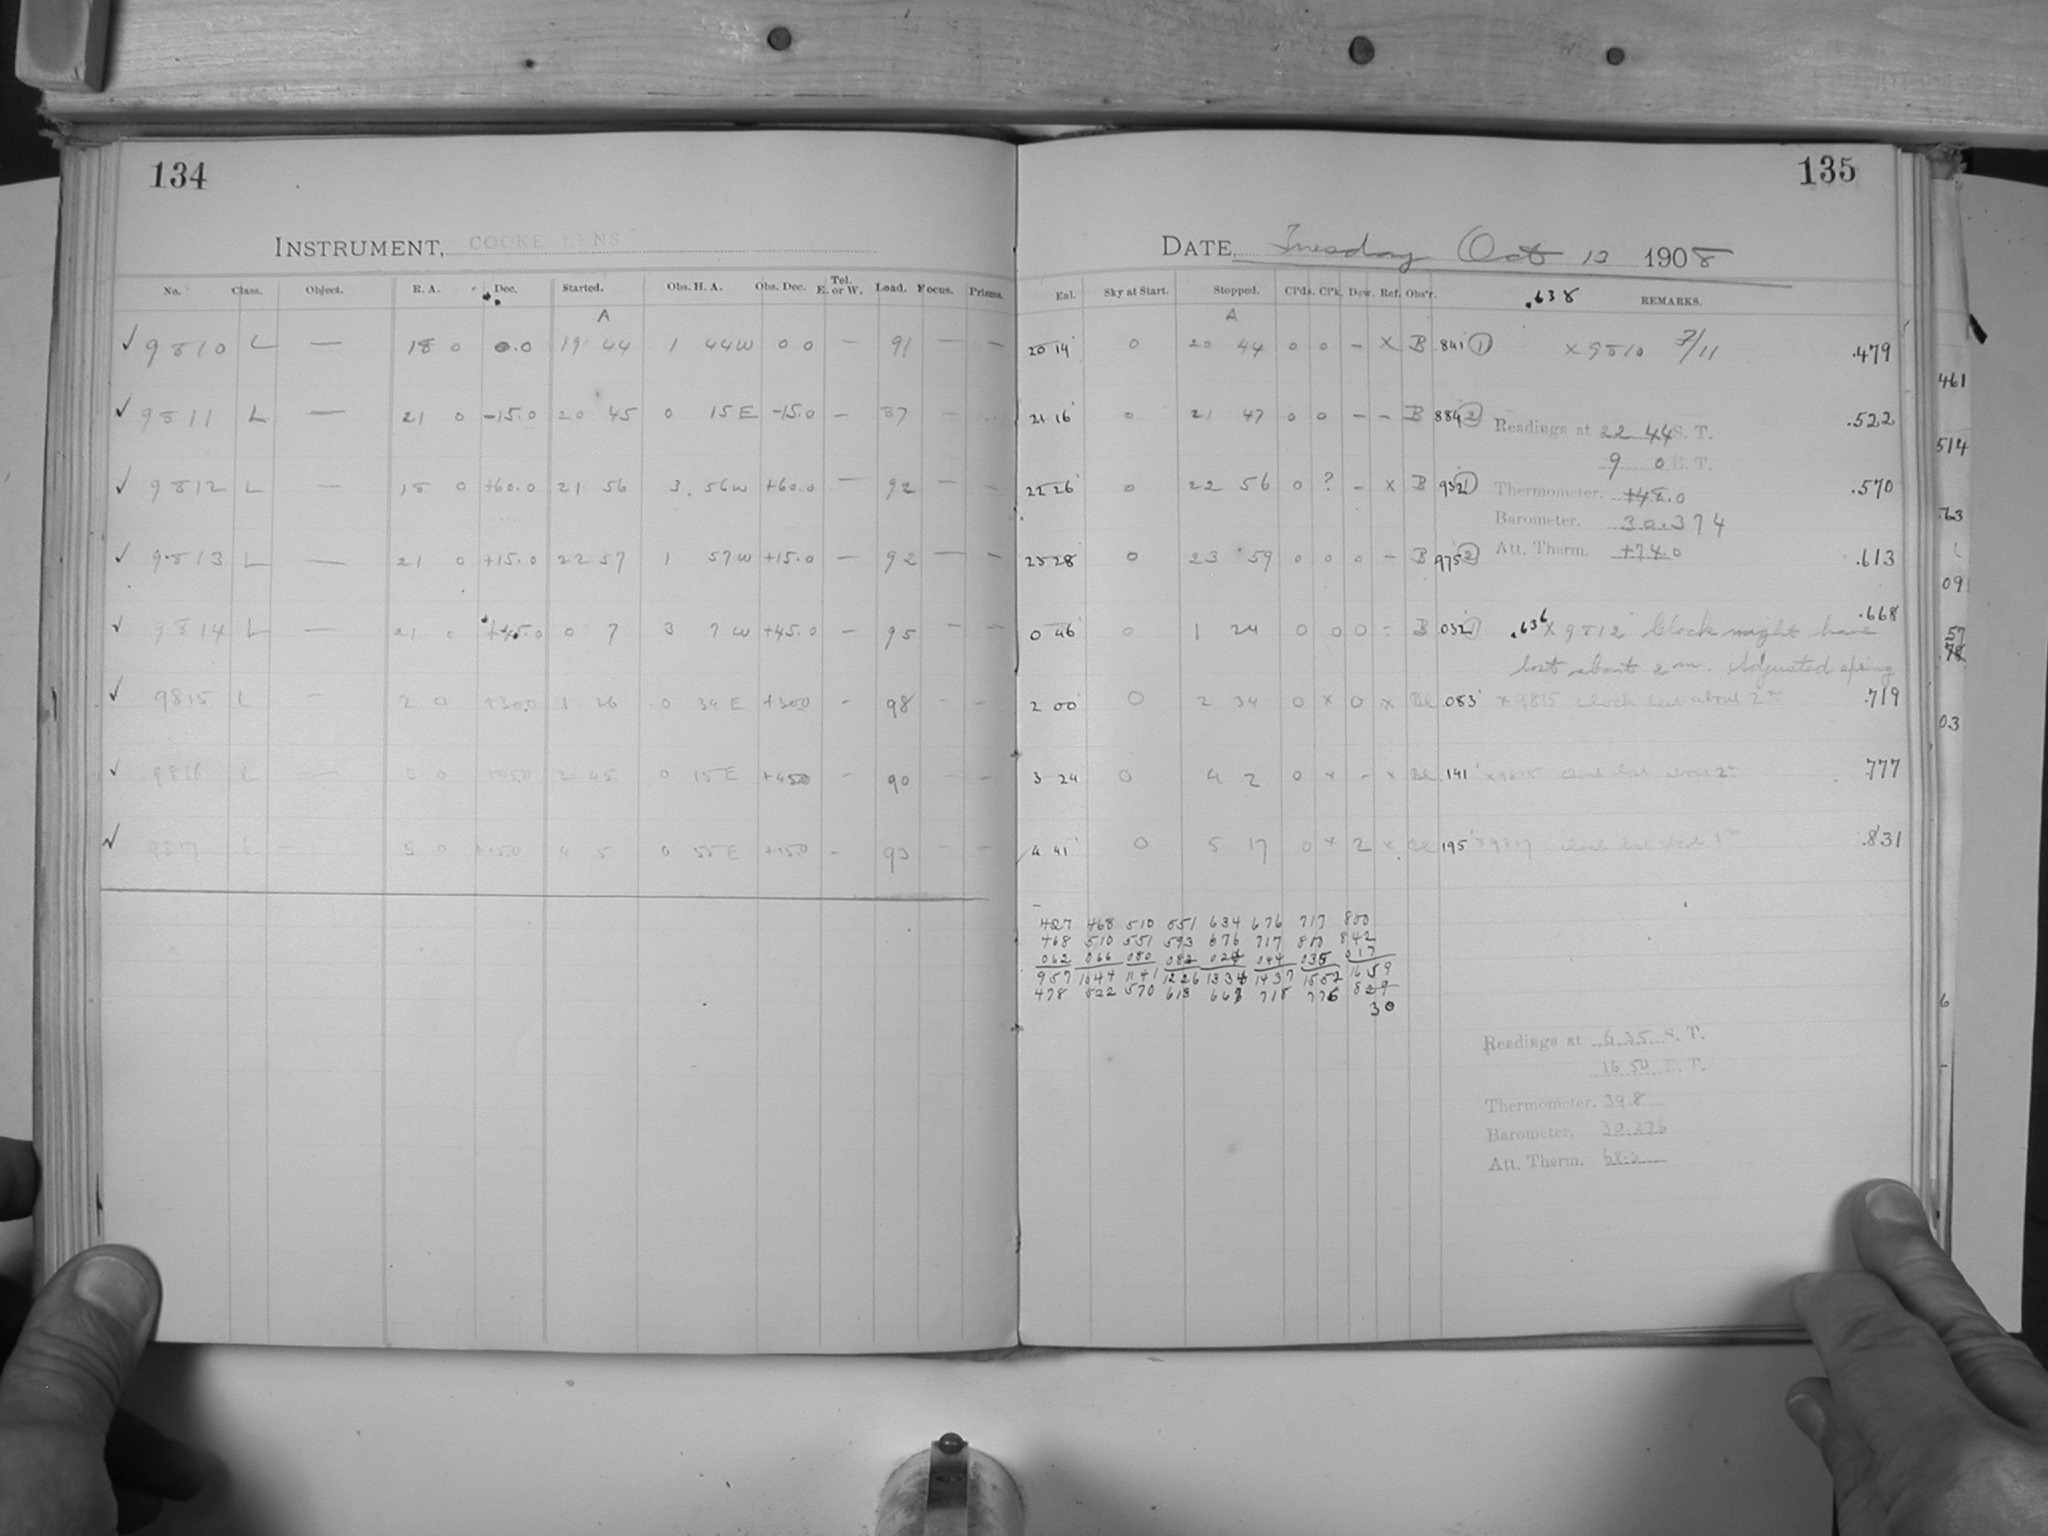 134
135
INSTRUMENT, COOKE LENS
DATE, Tuesday Oct 13 1908
No. Class. Object. R. A. Dec. Started. Obs. H. A. Obs. Dec. Tel. E. or W. Load. Focus. Prisms.
Enl. Sky at Start. Stopped. Cl'ds. Cl'k. Dew. Ref. Obs'r. .638 REMARKS.
A
A
✓ 9810 L — 18 0 0.0 19 44 1 44W 0 0 — 91 — — 20 14 0 20 44 0 0 – X B .841 ① × 9810 7/11 .479
✓ 9811 L — 21 0 -15.0 20 45 0 15E -15.0 — 87 — 21 16 0 21 47 0 0 – – B 884 ② .522
Readings at 22 44 S. T.
9 0 E. T.
✓ 9812 L — 18 0 +60.0 21 56 3 56W +60.0 — 92 — — 22 26 0 22 56 0 ? – x B 932 ① .570
Thermometer. +48.0
Barometer. 30.374
✓ 9813 L — 21 0 +15.0 22 57 1 57W +15.0 — 92 — — 23 28 0 23 59 0 0 0 – B 975 ② .613
Att. Therm. +74.0
✓ 9814 L — 21 0 +45.0 0 7 3 7W +45.0 — 95 — — 0 46 0 1 24 0 0 0 – B 032 ① .636 × 9812 Clock might have .668
lost about 2 m. Adjusted spring
✓ 9815 L — 2 0 +30.0 1 26 0 34E +30.0 — 98 — — 2 00 0 2 34 0 x 0 x Bl .083 × 9815 Clock lost about 2m .719
✓ 9816 L — 3 0 +45.0 2 45 0 15E +45.0 — 90 — — 3 24 0 4 2 0 x – x Bl 141 Clock lost about 2m .777
✓ 9817 L — 5 0 +15.0 4 5 0 55E +15.0 — 93 — — 4 41 0 5 17 0 x 2 x Bl 195 × 9817 Clock lost about 1m .831
427 468 510 551 634 676 717 800
468 510 551 593 676 717 800 842
062 066 080 082 024 044 035 017
957 1044 1141 1226 1334 1437 1552 1659
478 522 570 613 667 718 776 829
30
Readings at 6 35 S. T.
16 50 E. T.
Thermometer. 39.8
Barometer. 30.376
Att. Therm. 68.2
461
514
63
09
57
78
03
6